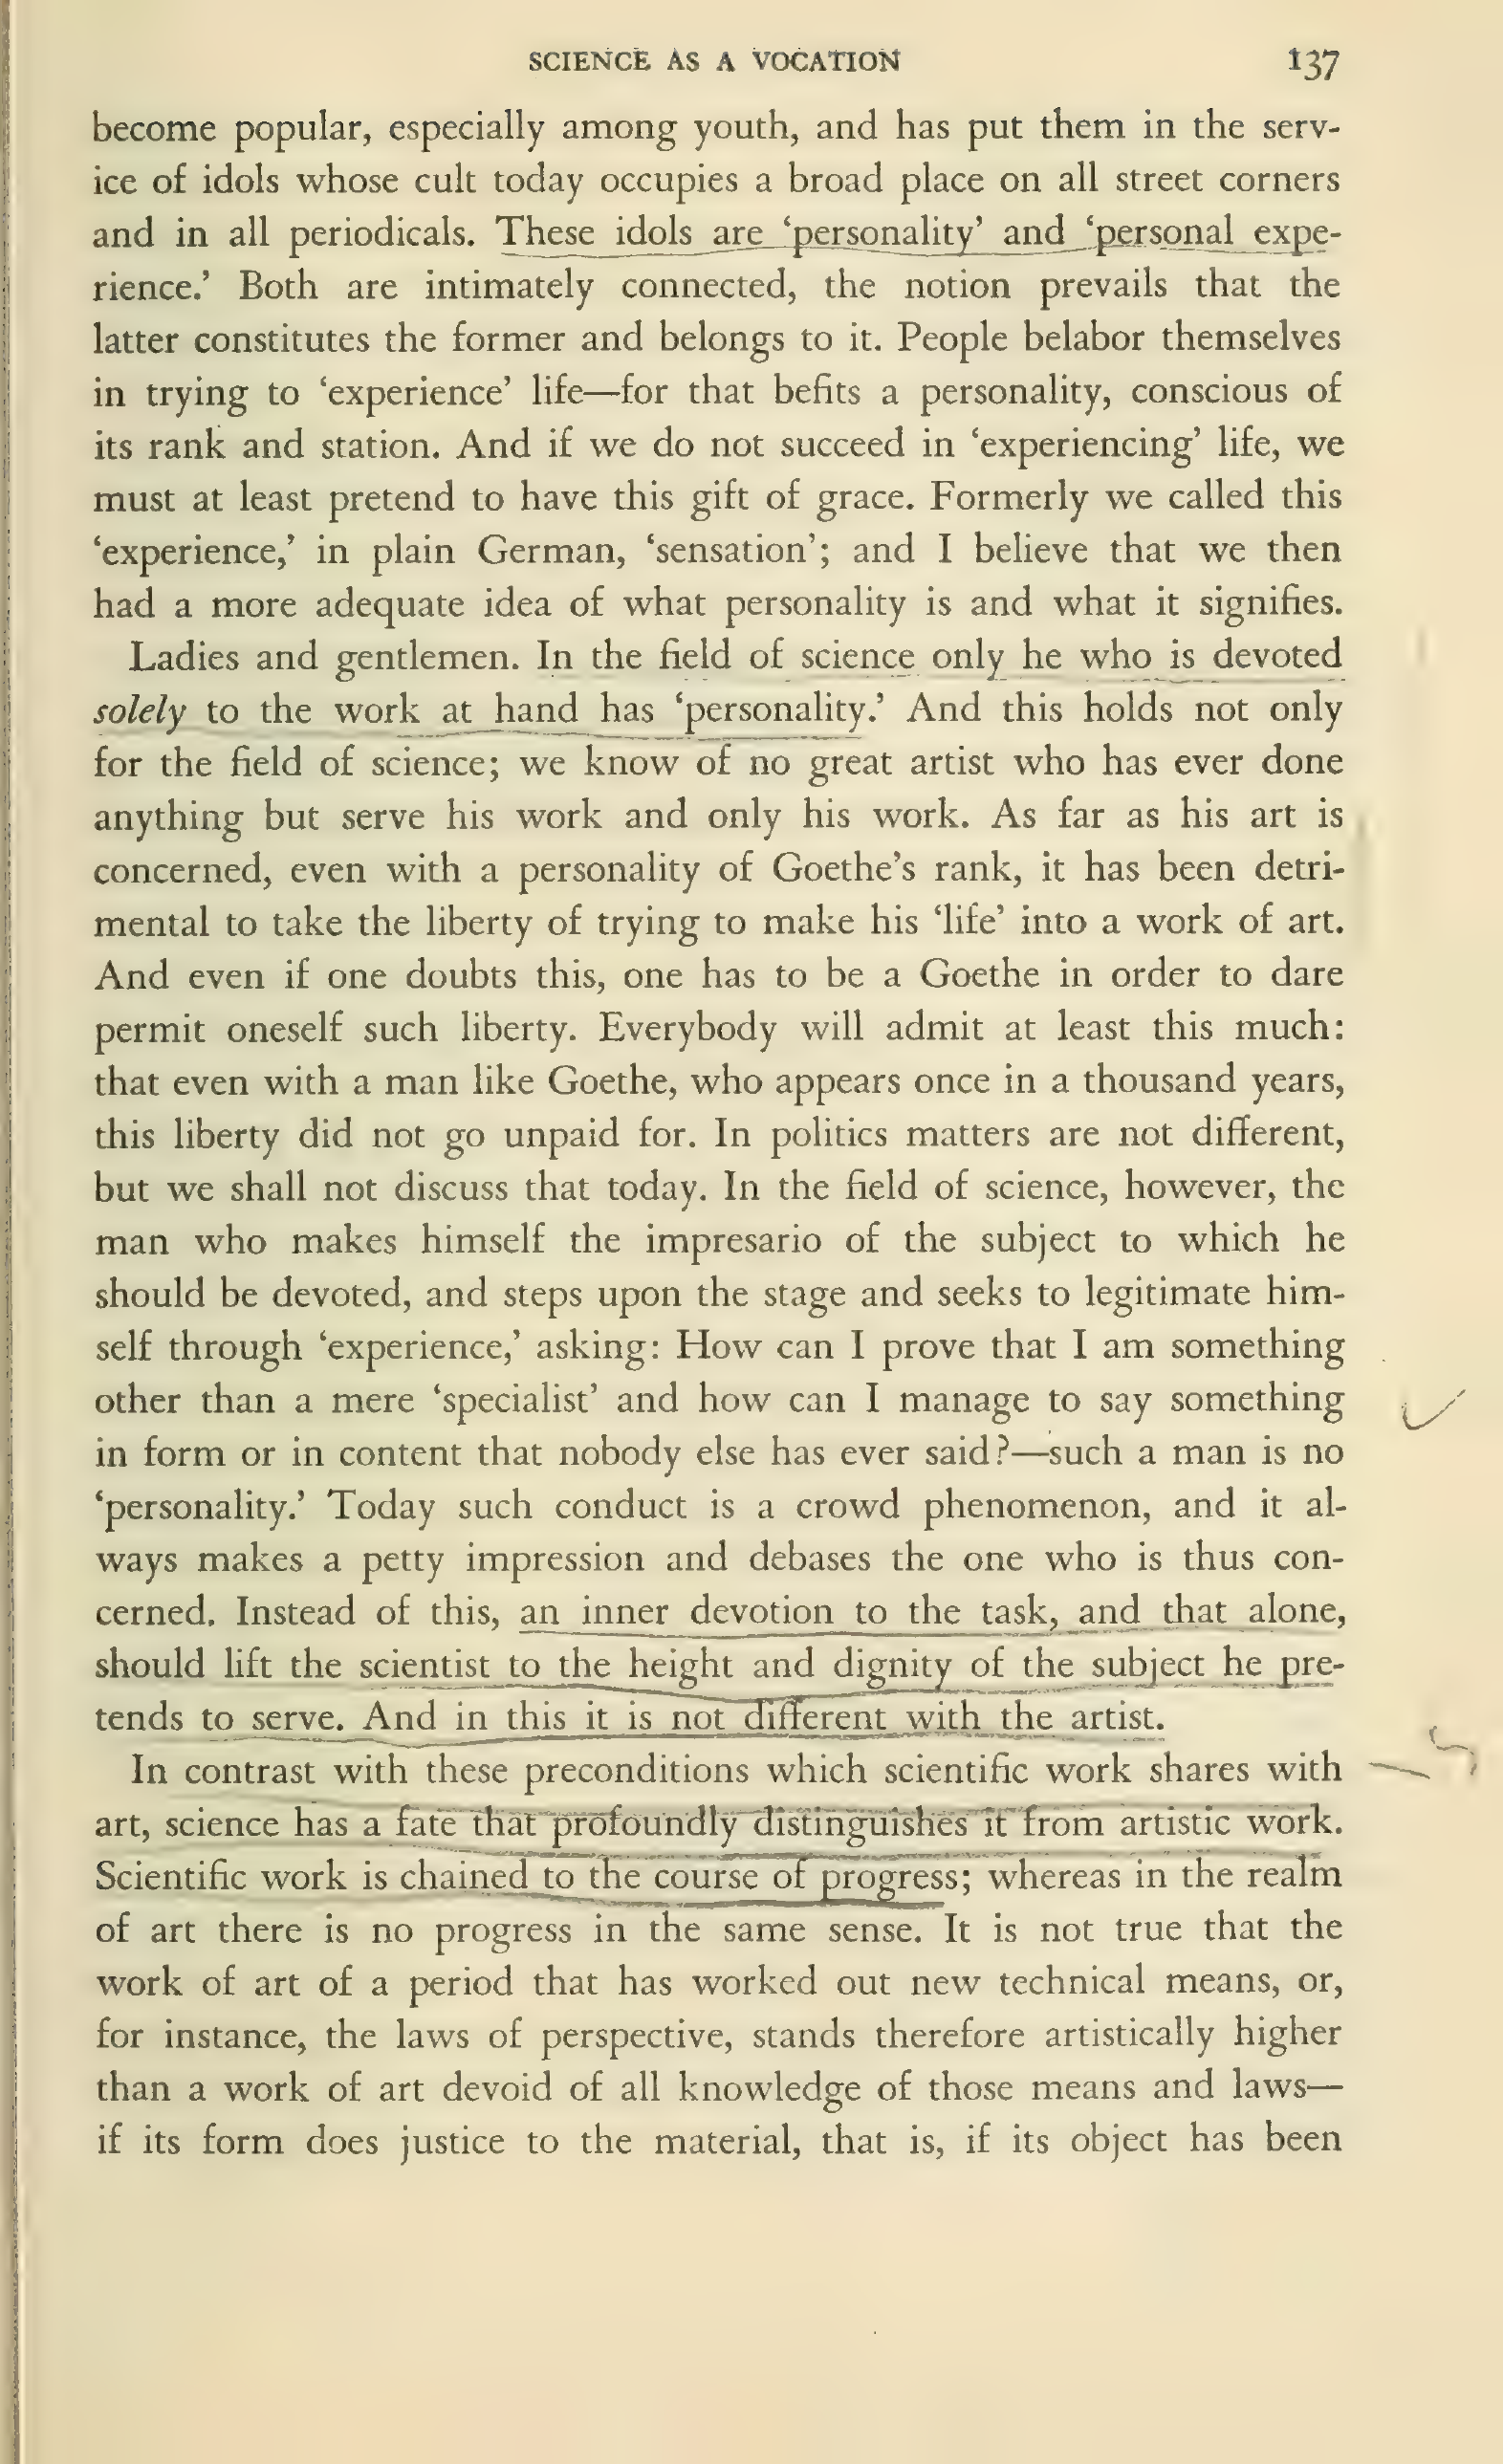 SCIENCE AS A VOCATION 137
become popular, especially among youth, and has put them in the serv-
ice of idols whose cult today occupies a broad place on all street corners
and in all periodicals. These idols are ‘personality’ and ‘personal expe-
rience.’ Both are intimately connected, the notion prevails that the
latter constitutes the former and belongs to it. People belabor themselves
in trying to ‘experience’ life—for that befits a personality, conscious of
its rank and station. And if we do not succeed in ‘experiencing’ life, we
must at least pretend to have this gift of grace. Formerly we called this
‘experience,’ in plain German, ‘sensation’; and I believe that we then
had a more adequate idea of what personality is and what it signifies.
Ladies and gentlemen. In the field of science only he who is devoted
solely to the work at hand has ‘personality.’ And this holds not only
for the field of science; we know of no great artist who has ever done
anything but serve his work and only his work. As far as his art is
concerned, even with a personality of Goethe’s rank, it has been detri-
mental to take the liberty of trying to make his ‘life’ into a work of art.
And even if one doubts this, one has to be a Goethe in order to dare
permit oneself such liberty. Everybody will admit at least this much:
that even with a man like Goethe, who appears once in a thousand years,
this liberty did not go unpaid for. In politics matters are not different,
but we shall not discuss that today. In the field of science, however, the
man who makes himself the impresario of the subject to which he
should be devoted, and steps upon the stage and seeks to legitimate him-
self through ‘experience,’ asking: How can I prove that I am something
other than a mere ‘specialist’ and how can I manage to say something
in form or in content that nobody else has ever said?—such a man is no
‘personality.’ Today such conduct is a crowd phenomenon, and it al-
ways makes a petty impression and debases the one who is thus con-
cerned. Instead of this, an inner devotion to the task, and that alone,
should lift the scientist to the height and dignity of the subject he pre-
tends to serve. And in this it is not different with the artist.
In contrast with these preconditions which scientific work shares with
art, science has a fate that profoundly distinguishes it from artistic work.
Scientific work is chained to the course of progress; whereas in the realm
of art there is no progress in the same sense. It is not true that the
work of art of a period that has worked out new technical means, or,
for instance, the laws of perspective, stands therefore artistically higher
than a work of art devoid of all knowledge of those means and laws—
if its form does justice to the material, that is, if its object has been